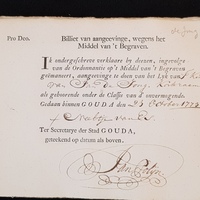 de Jong
Pro Deo.
Billiet van aangeevinge, wegens het
Middel van 't Begraven.
Ik ondergeschreve verklaare by deezen, ingevolge
van de Ordonnantie op 't Middel van 't Begraven
geëmaneert, aangeevinge te doen van het Lyk van
van de Jong
als gehoorende onder de Classis van d'onvermogende.
Gedaan binnen GOUDA, den 25 October 1772
Ter Secretarye der Stad GOUDA,
geteekend op datum als boven.